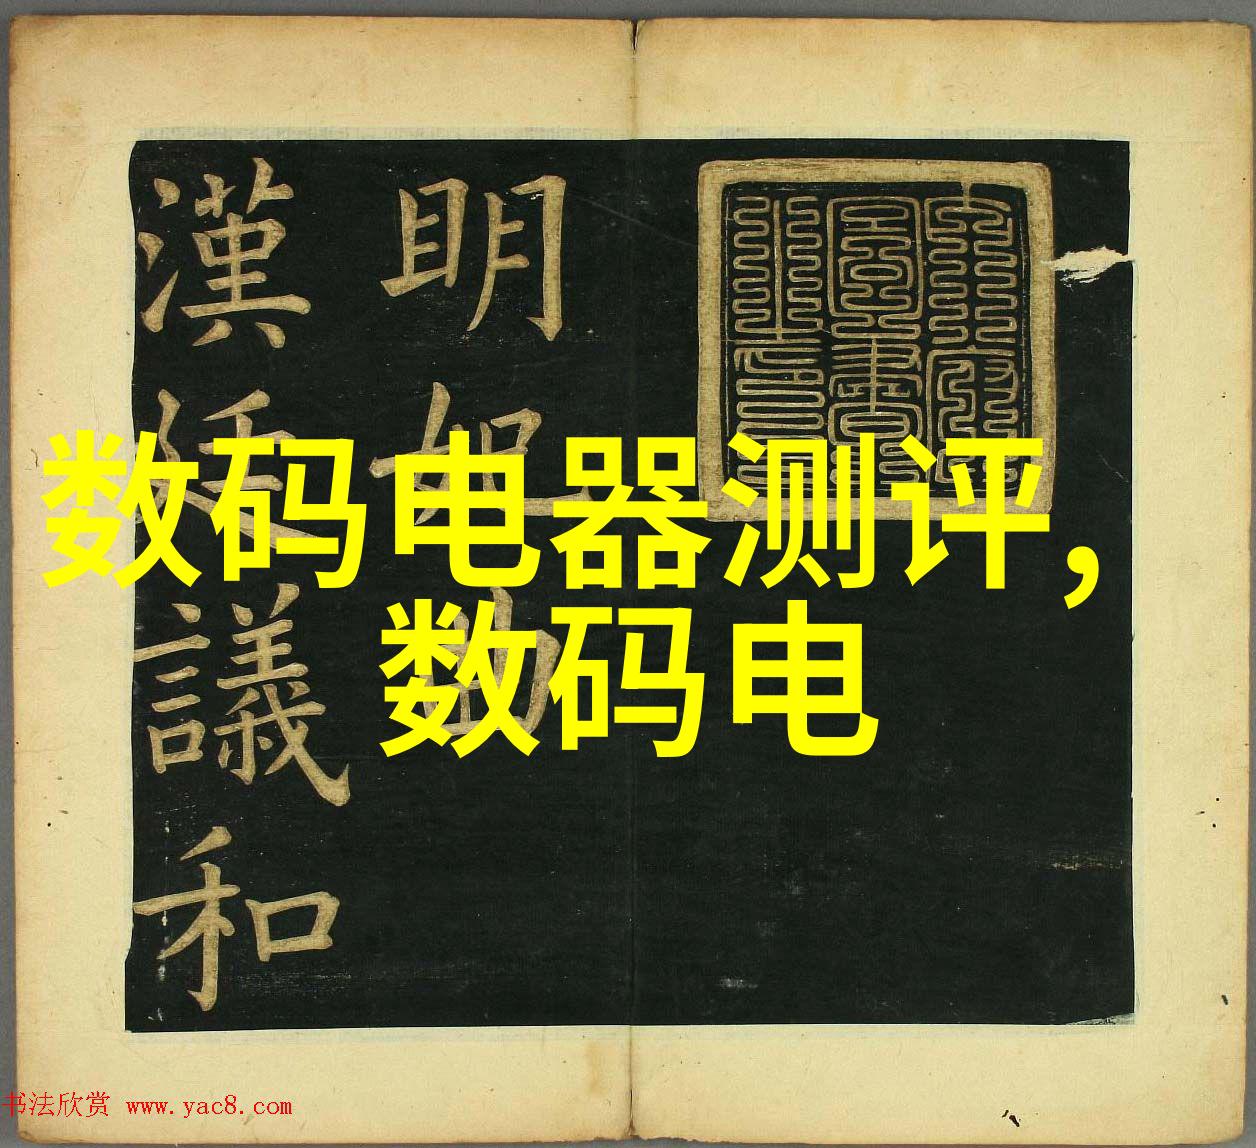 明妃曲
漢廷議和
数码电器测评，
数码电
书法欣赏 www.yac8.com